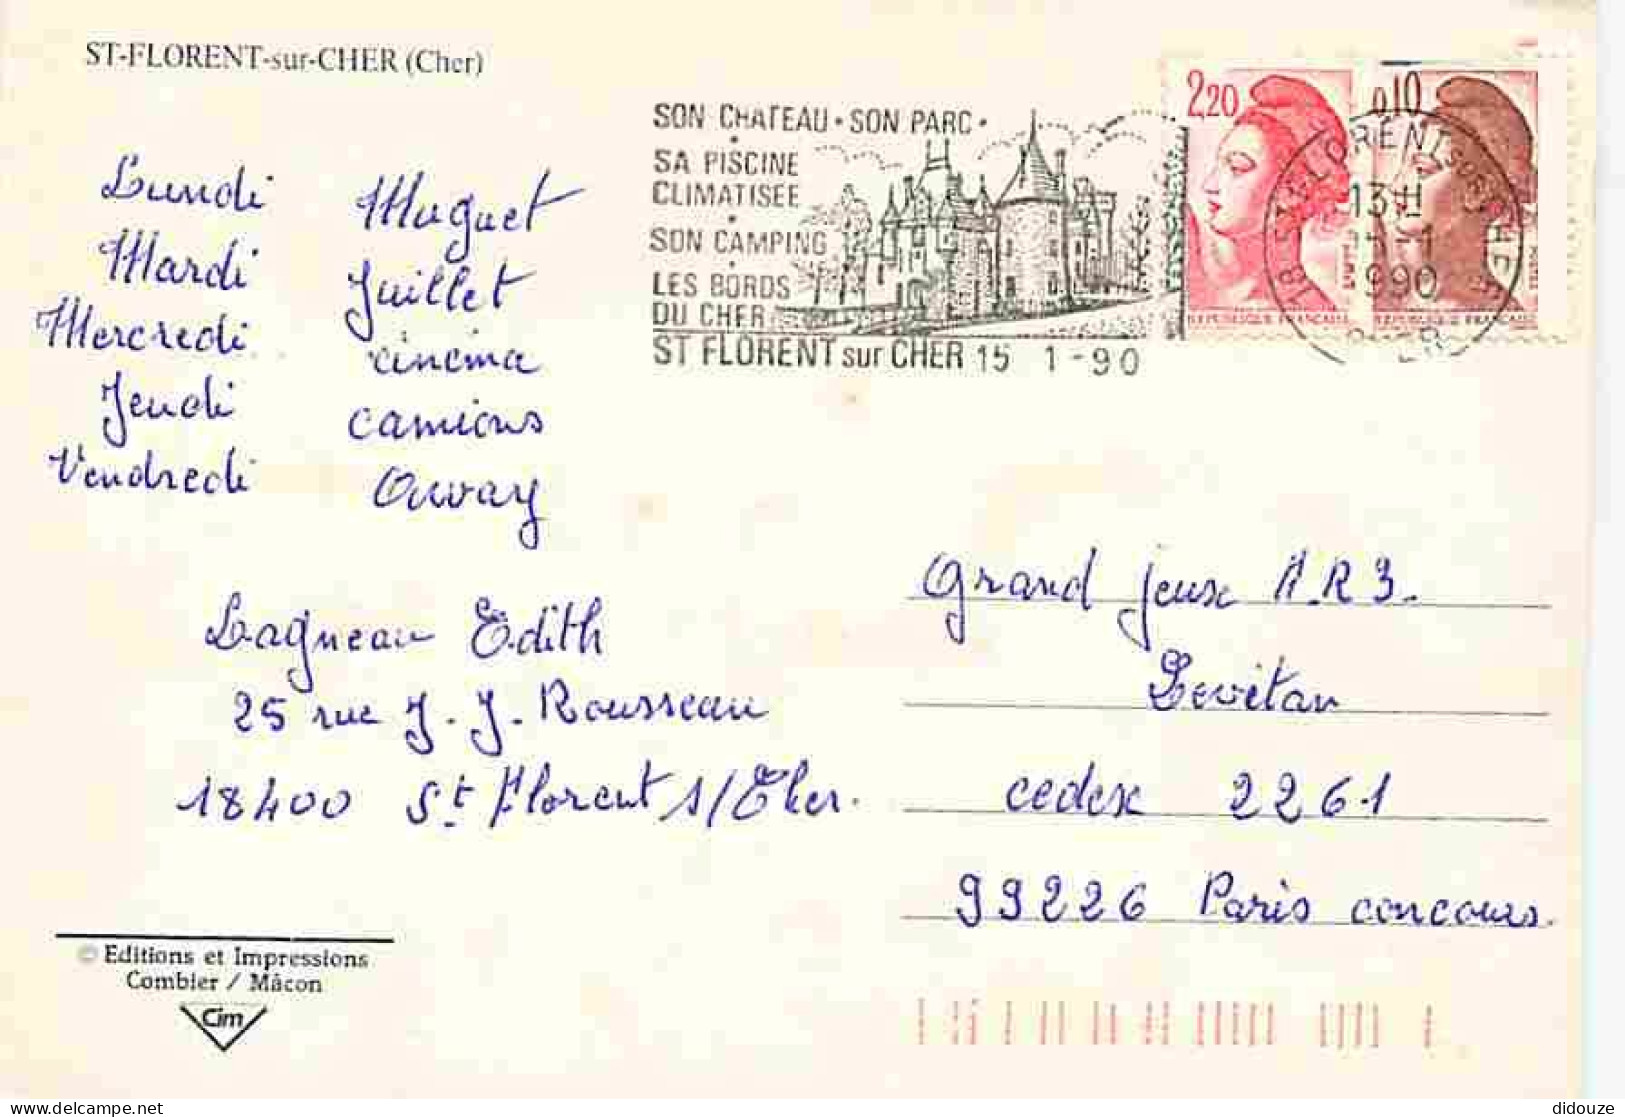 ST-FLORENT-sur-CHER (Cher)
SON CHATEAU • SON PARC •
SA PISCINE
CLIMATISEE
SON CAMPING
LES BORDS
DU CHER
ST FLORENT sur CHER 15 1 - 90
2,20
0,10
18 ST FLORENT SUR CHER
13 H
1990
CHER
REPUBLIQUE FRANÇAISE
Lundi Muguet
Mardi Juillet
Mercredi cinéma
Jeudi camions
Vendredi
Lagneau Edith
25 rue J. J. Rousseau
18400 St Florent s/Cher.
Grand jeux A.R3.
Levitan
cedex 2261
99226 Paris concours.
© Editions et Impressions
Combier / Mâcon
Cim
didouze